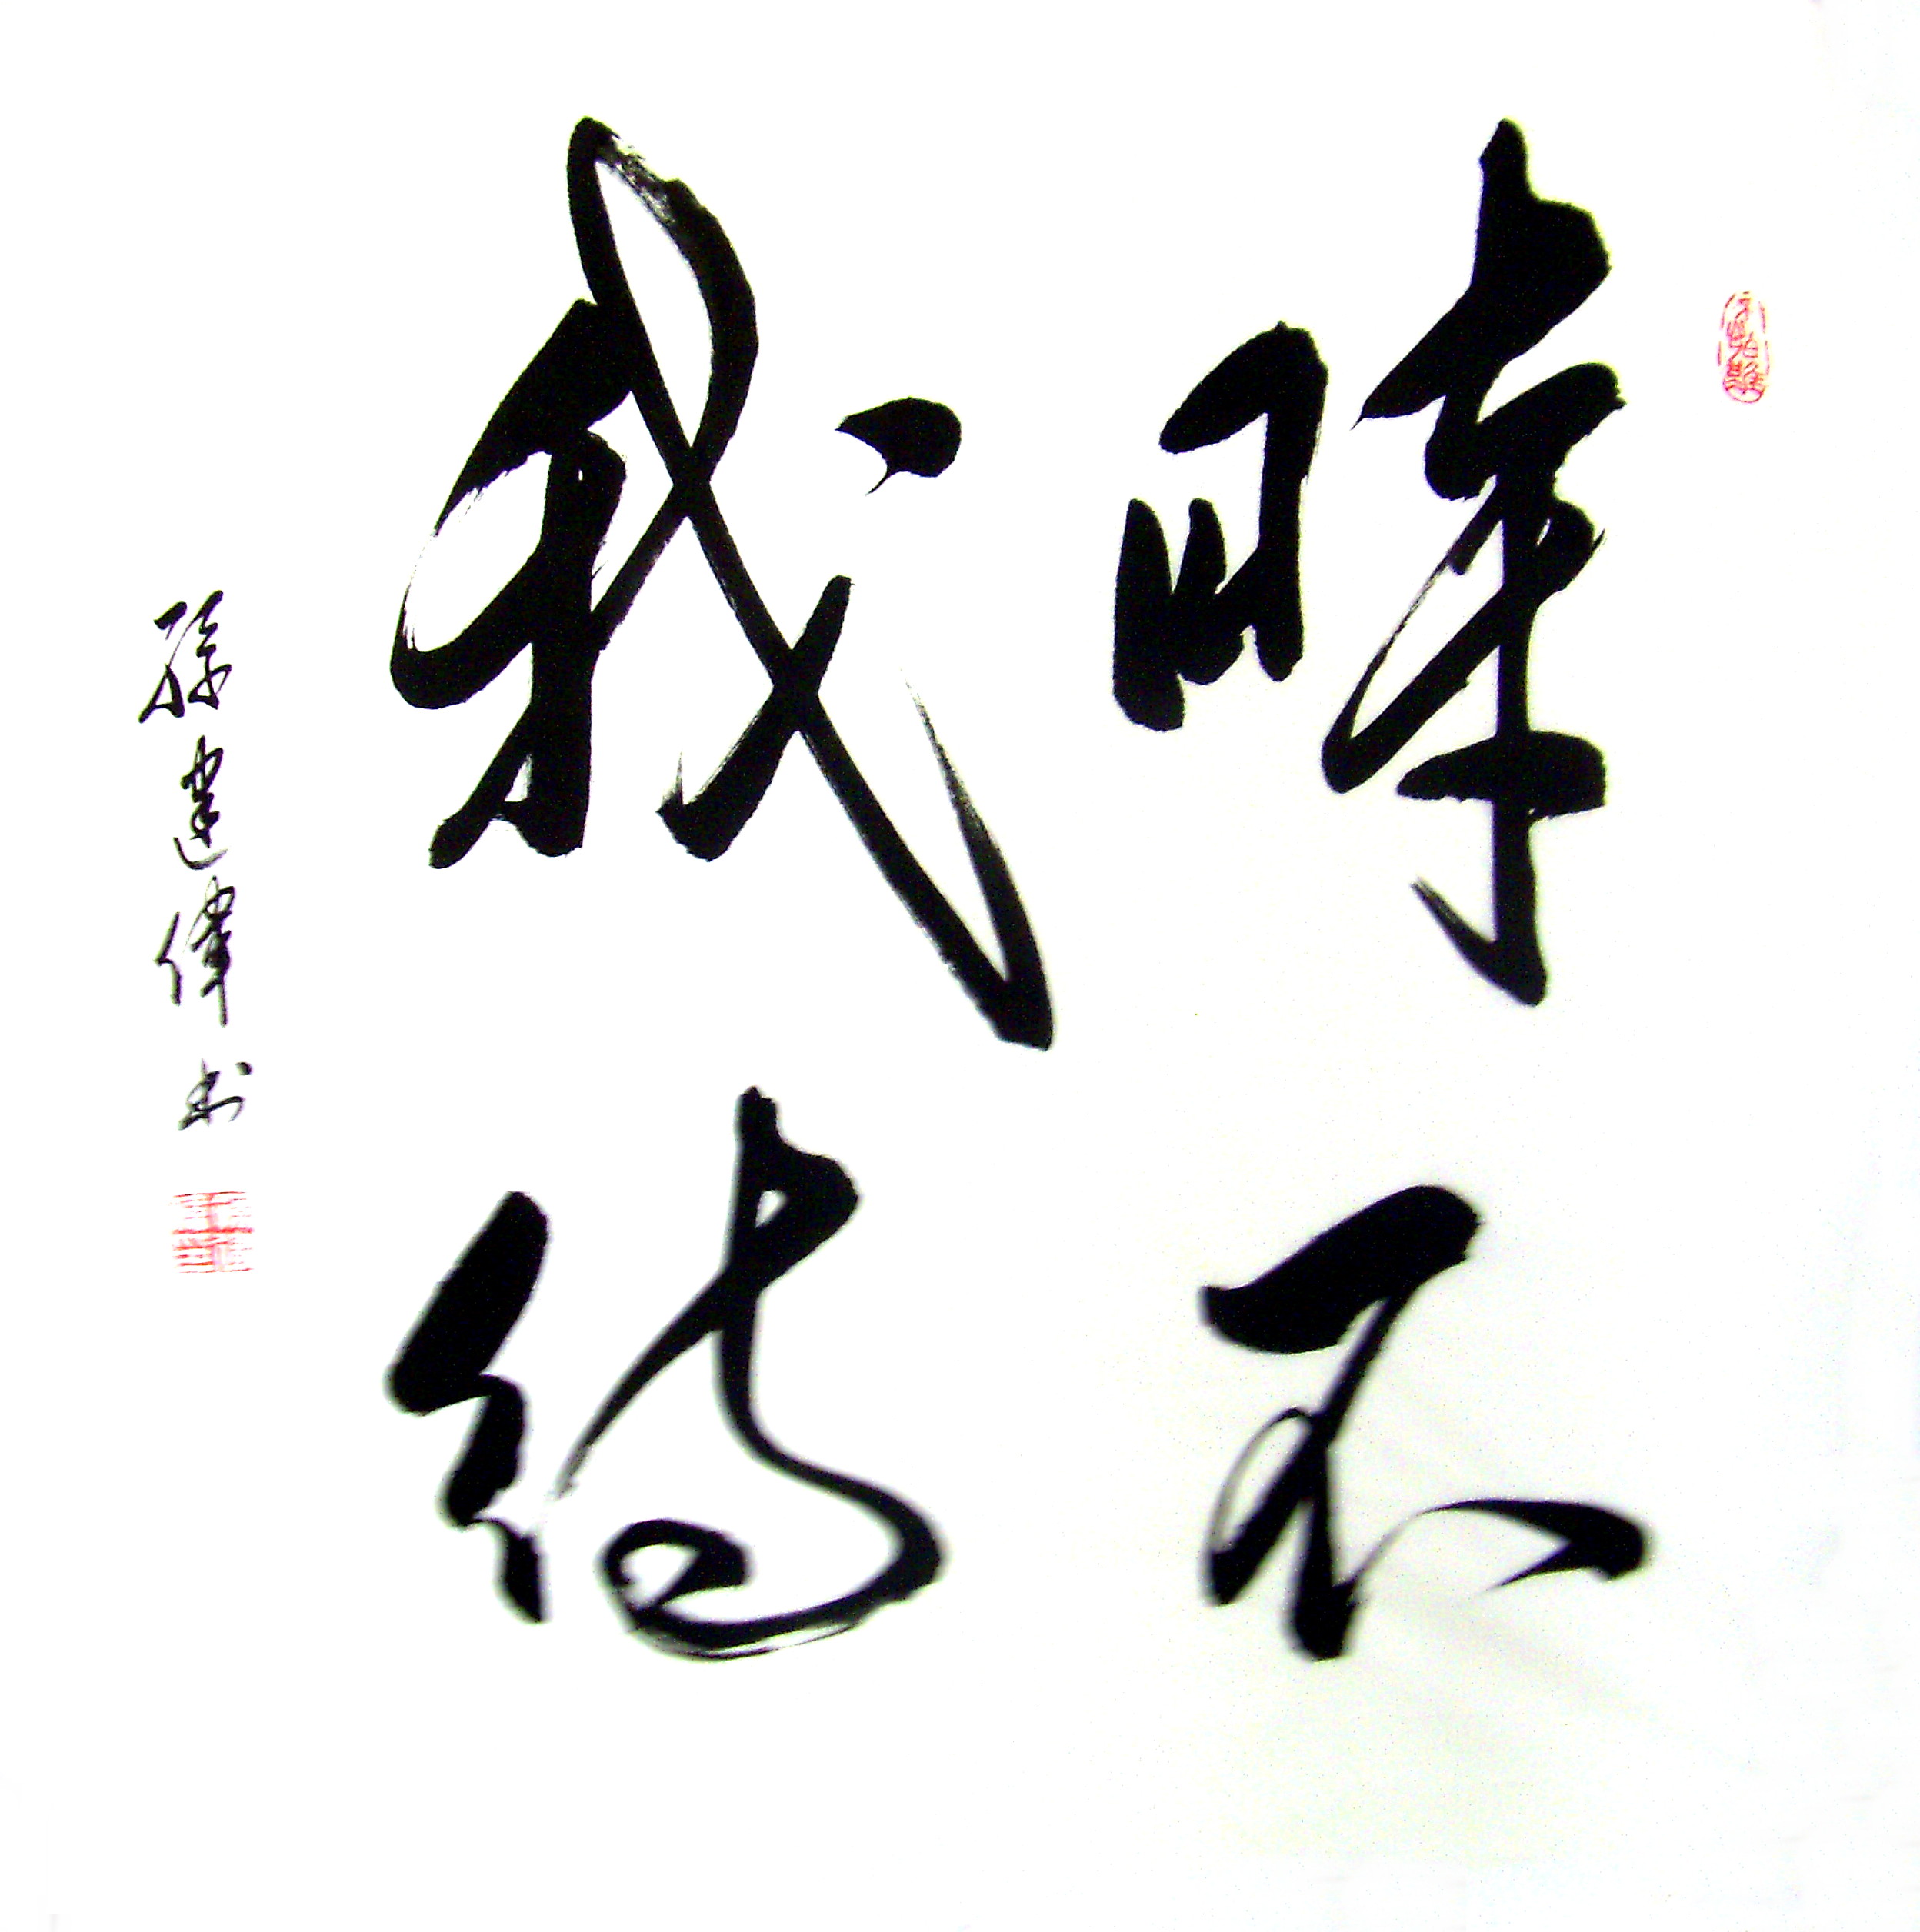 時不
我待
孫建偉书